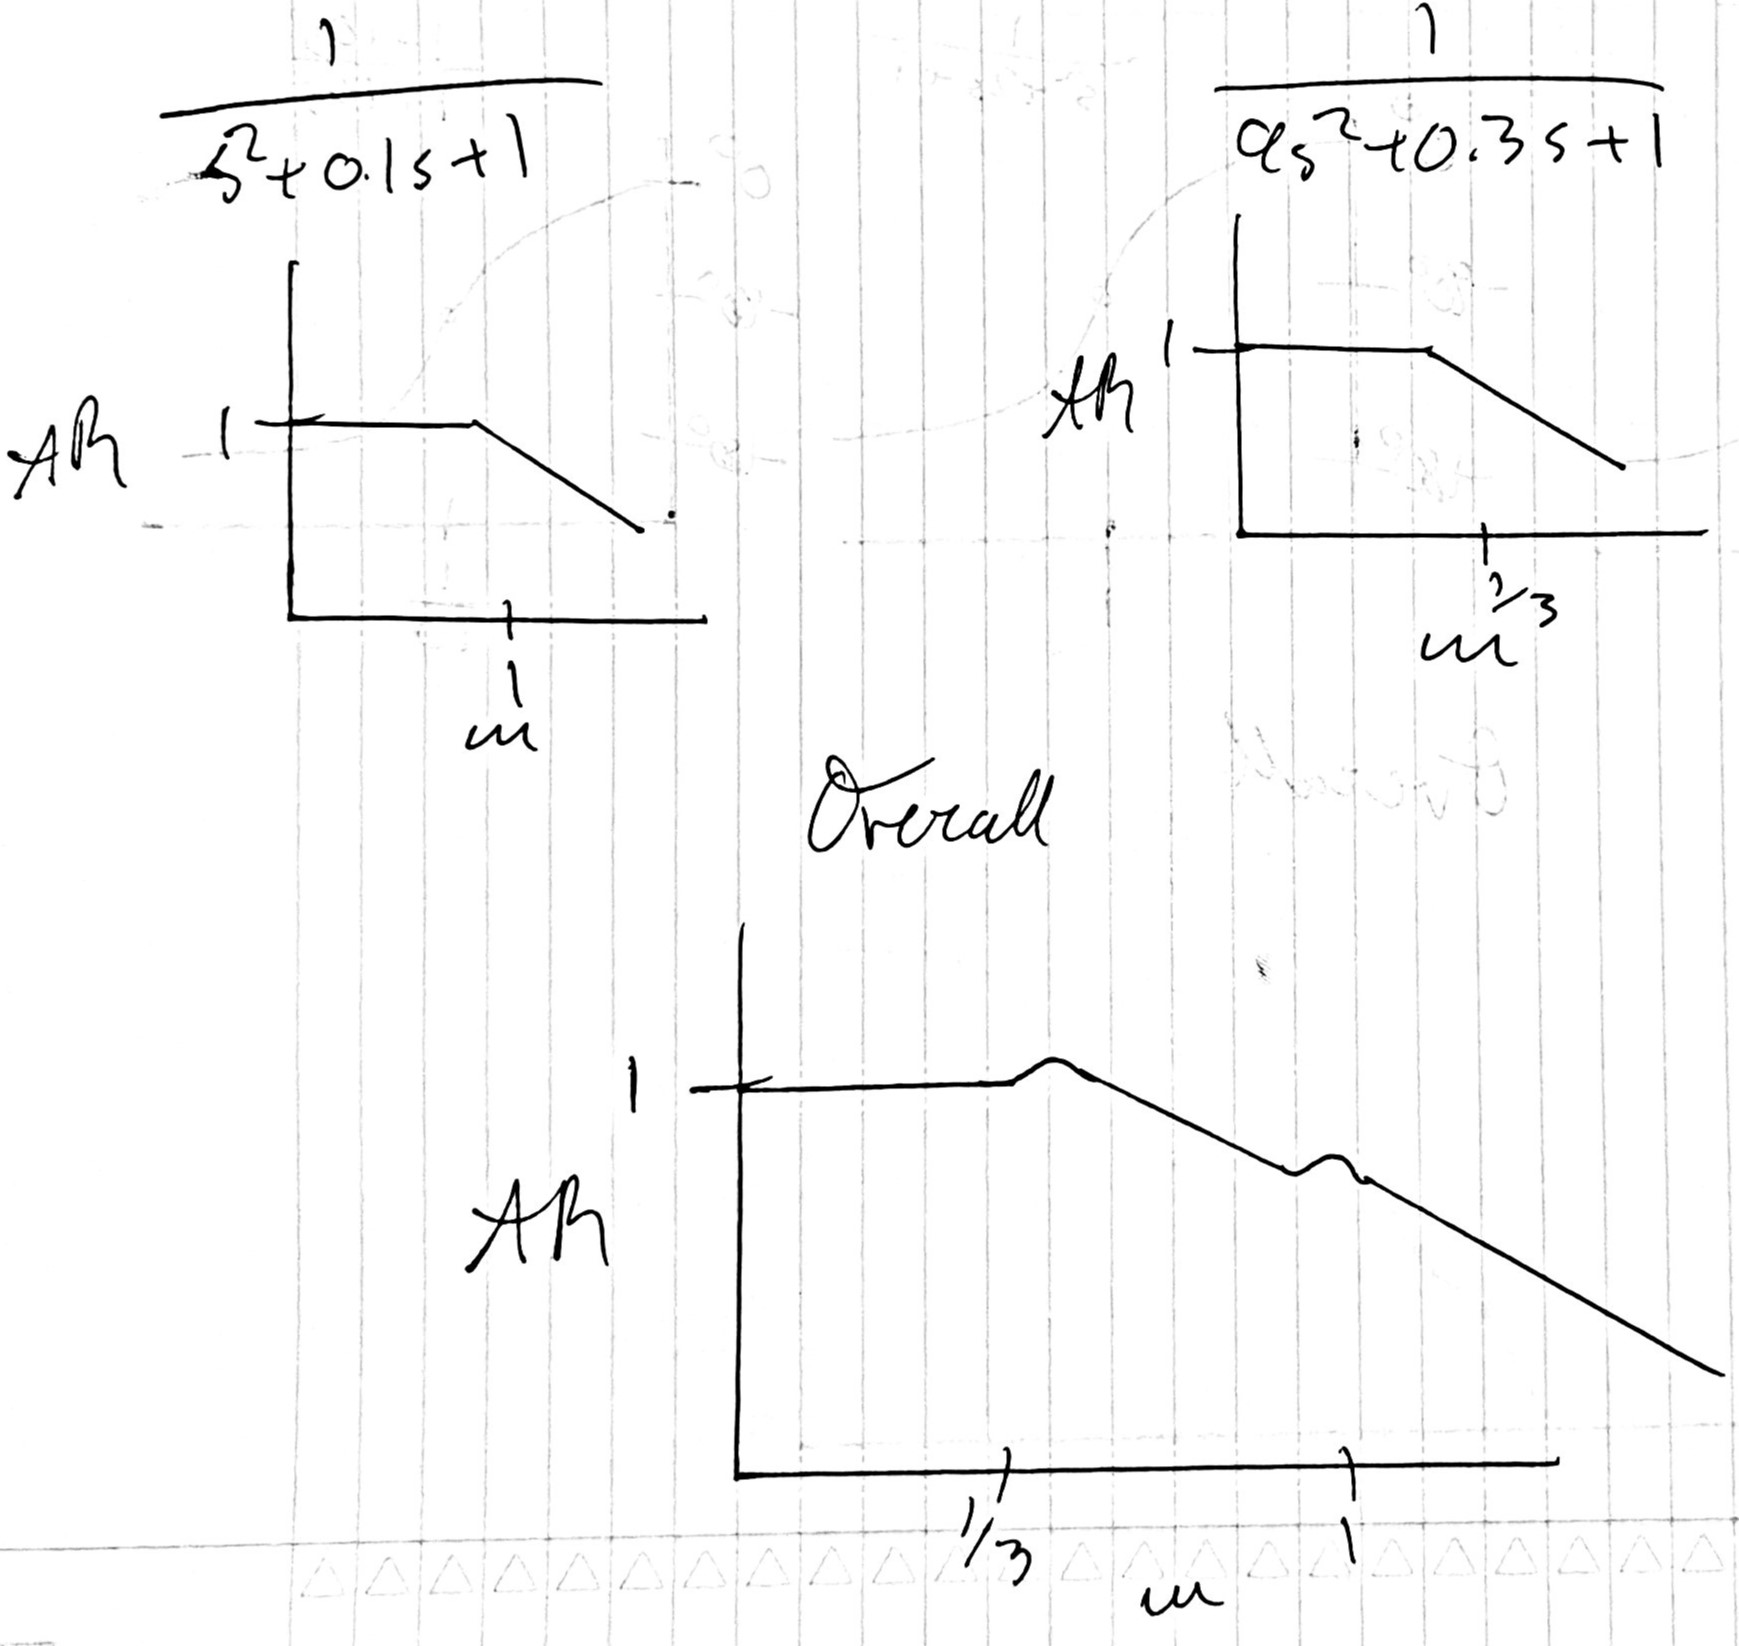 1
s²+0.1s+1
AR
1
1
ω
1
9s²+0.3s+1
AR
1
1/3
ω
Overall
1
AR
1/3
1
ω